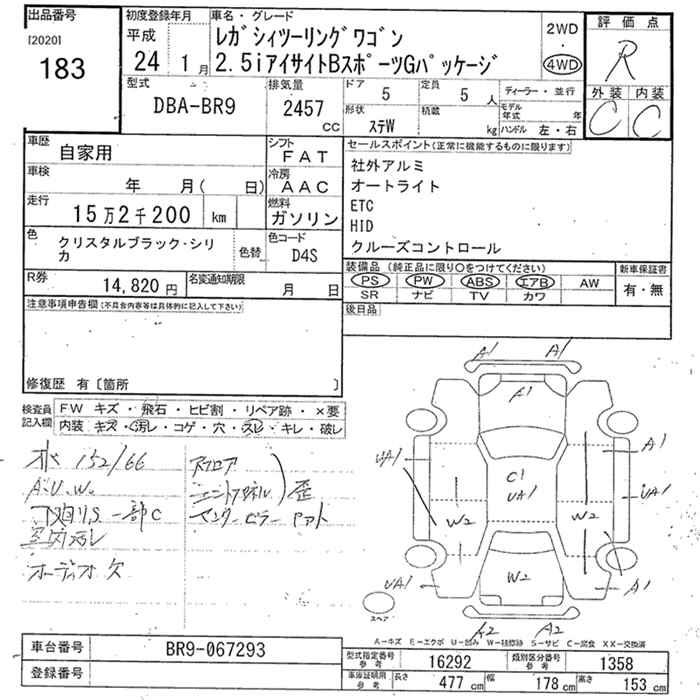 出品番号
[2020]
183
初度登録年月
平成
24 1月
車名・グレード
レガシィツーリングワゴン
2.5iアイサイトBスポーツGパッケージ
2WD
・
4WD
評価点
R
外装 内装
C C
型式
DBA-BR9
排気量
2457
CC
ドア
5
定員
5人
ディーラー・並行
形状
ステW
積載
kg
モデル年式 年
ハンドル 左・右
車歴
自家用
シフト
FAT
車検
年 月( 日)
冷房
AAC
走行
15万2千200 km
燃料
ガソリン
色
クリスタルブラック・シリカ
色替
色コード
D4S
R券
14,820円
名変通知期限
月 日
セールスポイント(正常に機能するものに限ります)
社外アルミ
オートライト
ETC
HID
クルーズコントロール
装備品(純正品に限り○をつけてください)
PS PW ABS エアB AW
SR ナビ TV カワ
新車保証書
有・無
後日品
注意事項申告欄(不具合内容等は具体的に記入して下さい)
修復歴 有〔箇所 〕
検査員記入欄
FW キズ・飛石・ヒビ割・リペア跡・×要
内装 キズ・汚レ・コゲ・穴・スレ・キレ・破レ
水 152/66
A.U.W.
室内汚レ
オーディオ欠
フロア
歪
センターピラー
A1 A1
A1
UA1
A1
C1
UA1
UA1
W2 W2
W2
UA1
A1
A2 A2
スペア
A-キズ E-エクボ U-凹み W-補修跡 S-サビ C-腐食 XX-交換済
車台番号
BR9-067293
登録番号
型式指定番号 参考
16292
類別区分番号 参考
1358
車庫証明用 参考
長さ 477 cm
幅 178 cm
高さ 153 cm